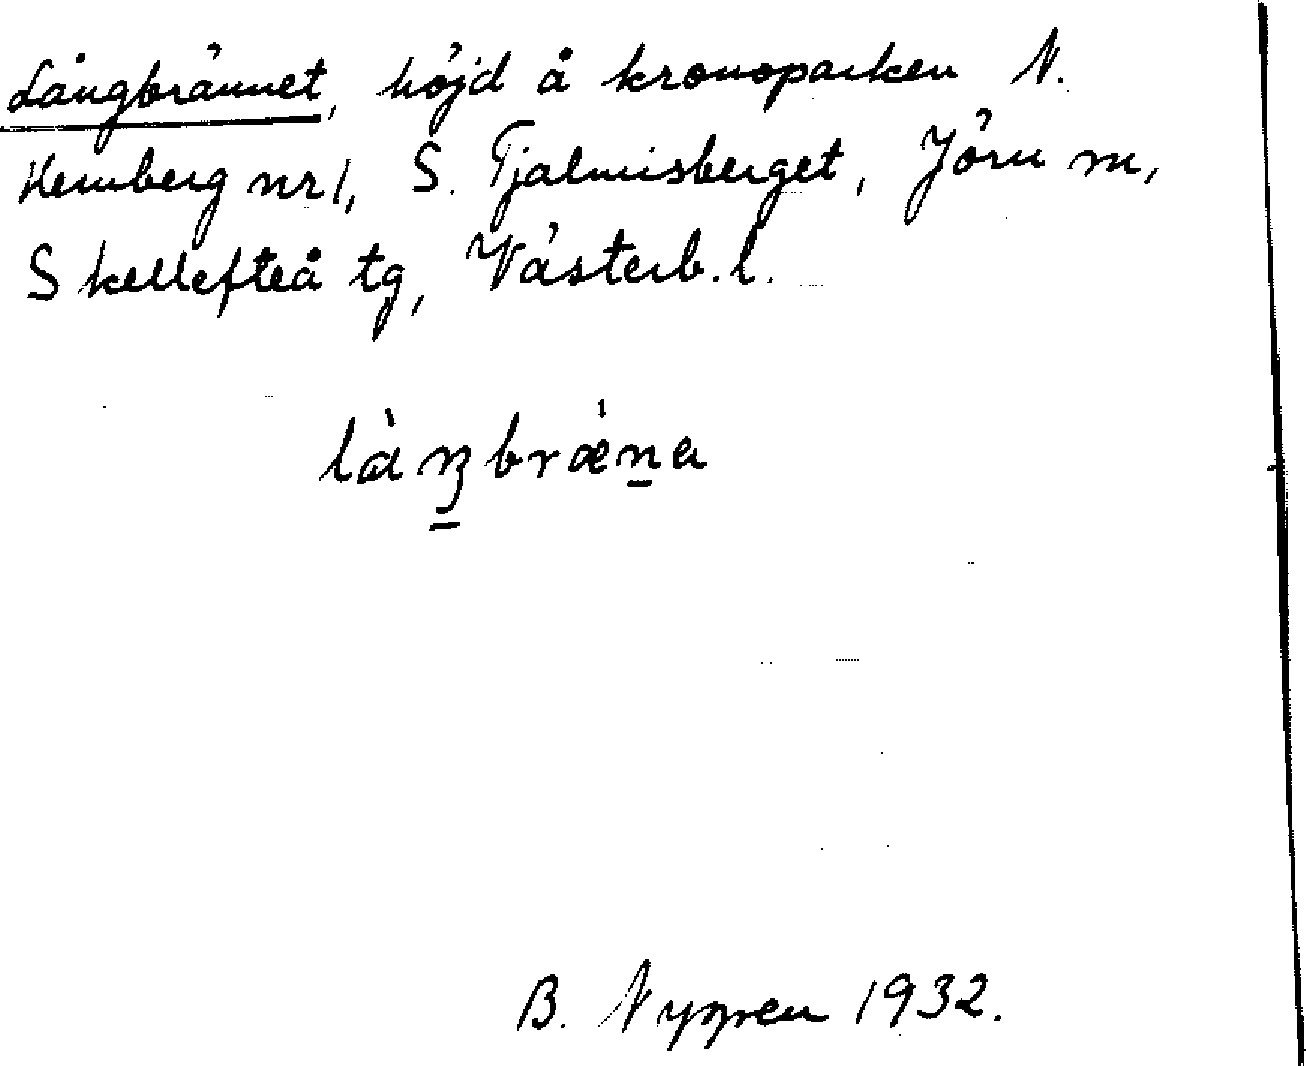 Långbrännet, höjd å kronoparken N.
Hemberg nr 1, S. Tjalmisberget, Jörn m,
Skellefteå tg, Västerb. l.
là̱ŋbrǽn̲a
B. Nygren 1932.